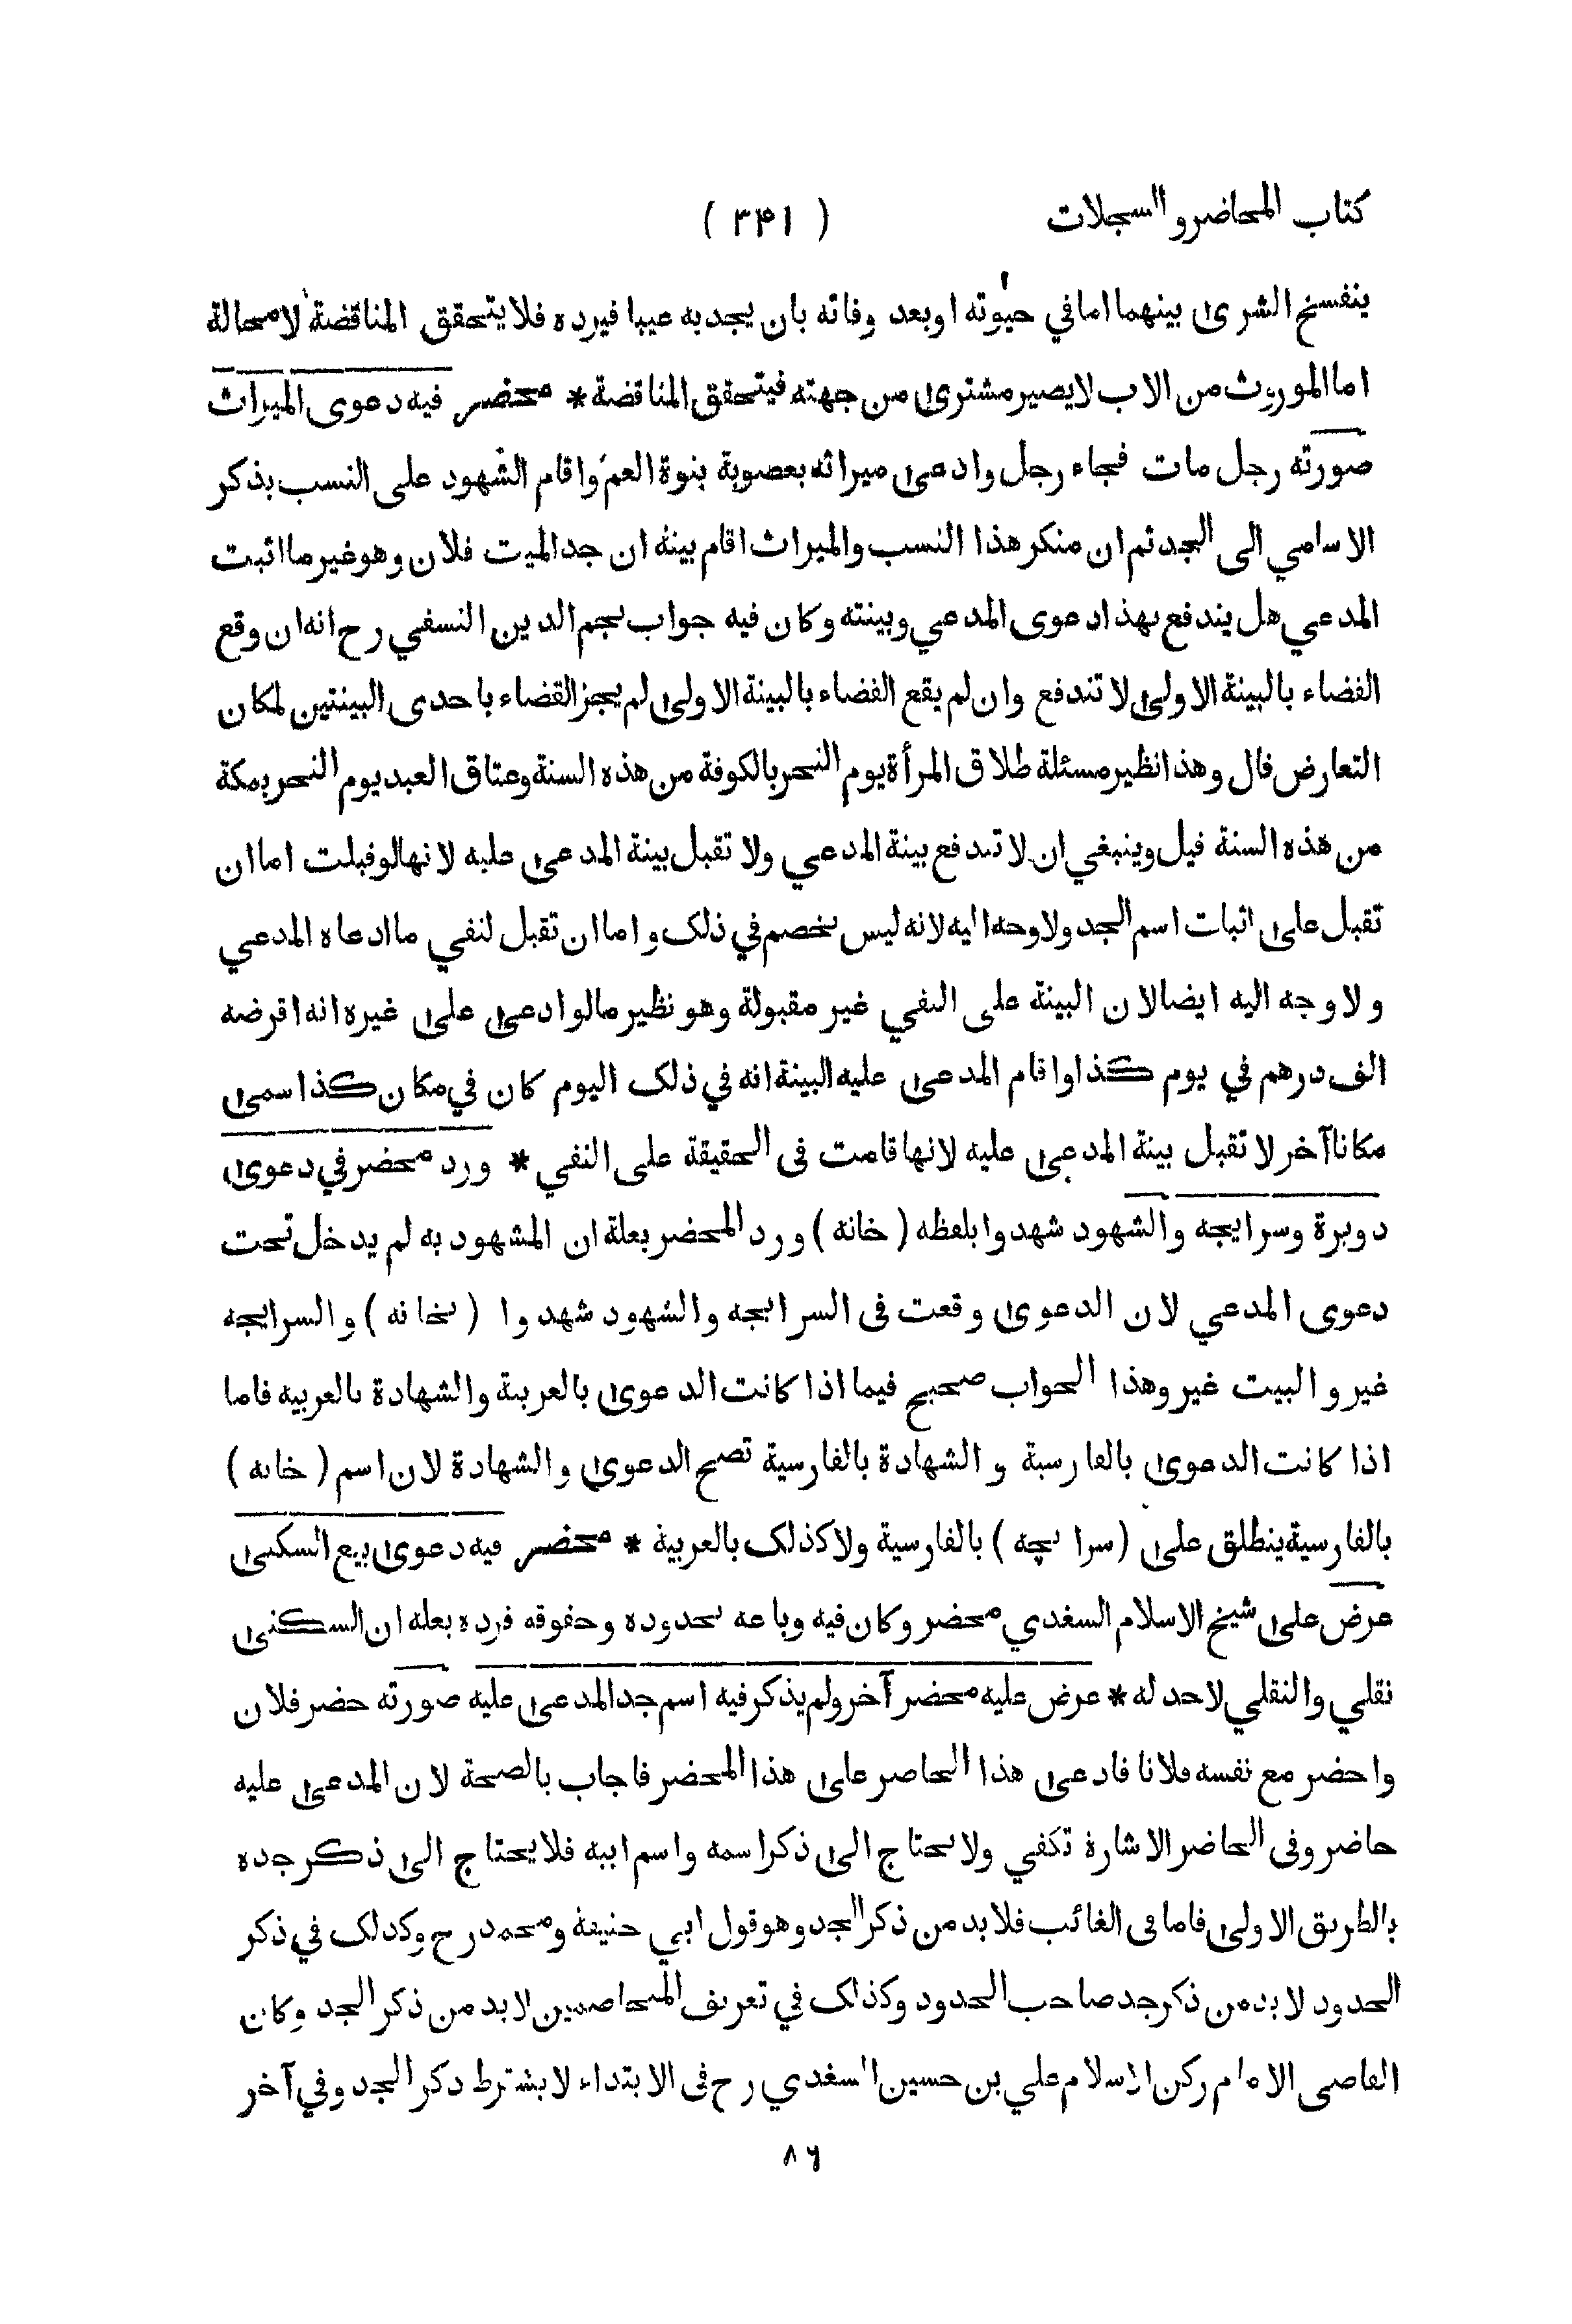 كتاب المحاضر والسجلات
( ٣۴١ )
ينفسخ الشرى بينهما اما في حيوته او بعد وفاته بان يجد به عيبا فيرده فلا يتحقق المناقضة لا محالة
اما الموريث من الاب لا يصير مشترى من جهته فيتحقق المناقضة * محضر فيه دعوى الميراث
صورته رجل مات فجاء رجل وادعى ميراثه بعصوبة بنوة العم واقام الشهود على النسب بذكر
الاسامي الى الجد ثم ان منكر هذا النسب والميراث اقام بينة ان جد الميت فلان وهو غير ما اثبت
المدعي هل يندفع بهذا دعوى المدعي وبينته وكان فيه جواب نجم الدين النسفي رح انه ان وقع
القضاء بالبينة الاولى لا تندفع وان لم يقع القضاء بالبينة الاولى لم يجز القضاء باحدى البينتين لمكان
التعارض قال وهذا نظير مسئلة طلاق المرأة يوم النحر بالكوفة من هذه السنة وعتاق العبد يوم النحر بمكة
من هذه السنة قيل وينبغي ان لا تندفع بينة المدعي ولا تقبل بينة المدعى عليه لانها لو قبلت اما ان
تقبل على اثبات اسم الجد ولا وجه اليه لانه ليس بخصم في ذلك واما ان تقبل لنفي ما ادعاه المدعي
ولا وجه اليه ايضا لان البينة على النفي غير مقبولة وهو نظير ما لو ادعى على غيره انه اقرضه
الف درهم في يوم كذا واقام المدعى عليه البينة انه في ذلك اليوم كان في مكان كذا سمى
مكانا آخر لا تقبل بينة المدعى عليه لانها قامت فى الحقيقة على النفي * ورد محضر في دعوى
دويرة وسرايجه والشهود شهدوا بلفظه ( خانه ) ورد المحضر بعلة ان المشهود به لم يدخل تحت
دعوى المدعي لان الدعوى وقعت فى السرايجه والشهود شهدوا ( بخانه ) والسرايجه
غير و البيت غير وهذا الجواب صحيح فيما اذا كانت الدعوى بالعربية والشهادة بالعربيه فاما
اذا كانت الدعوى بالفارسية و الشهادة بالفارسية تصح الدعوى والشهادة لان اسم ( خانه )
بالفارسية ينطلق على ( سرايچه ) بالفارسية ولا كذلك بالعربية * محضر فيه دعوى بيع السكنى
عرض على شيخ الاسلام السغدي محضر وكان فيه وباعه بحدوده وحقوقه فرده بعلة ان السكنى
نقلي والنقلي لا حد له * عرض عليه محضر آخر ولم يذكر فيه اسم جد المدعى عليه صورته حضر فلان
واحضر مع نفسه فلانا فادعى هذا الحاضر على هذا المحضر فاجاب بالصحة لان المدعى عليه
حاضر وفى الحاضر الاشارة تكفي ولا يحتاج الى ذكر اسمه واسم ابيه فلا يحتاج الى ذكر جده
بالطريق الاولى فاما فى الغائب فلا بد من ذكر الجد وهو قول ابي حنيفة ومحمد رح وكذلك في ذكر
الحدود لا بد من ذكر جد صاحب الحدود وكذلك في تعريف المتخاصمين لا بد من ذكر الجد وكان
القاضى الامام ركن الاسلام علي بن حسين السغدي رح فى الابتداء لا يشترط ذكر الجد وفي آخر
٨٦